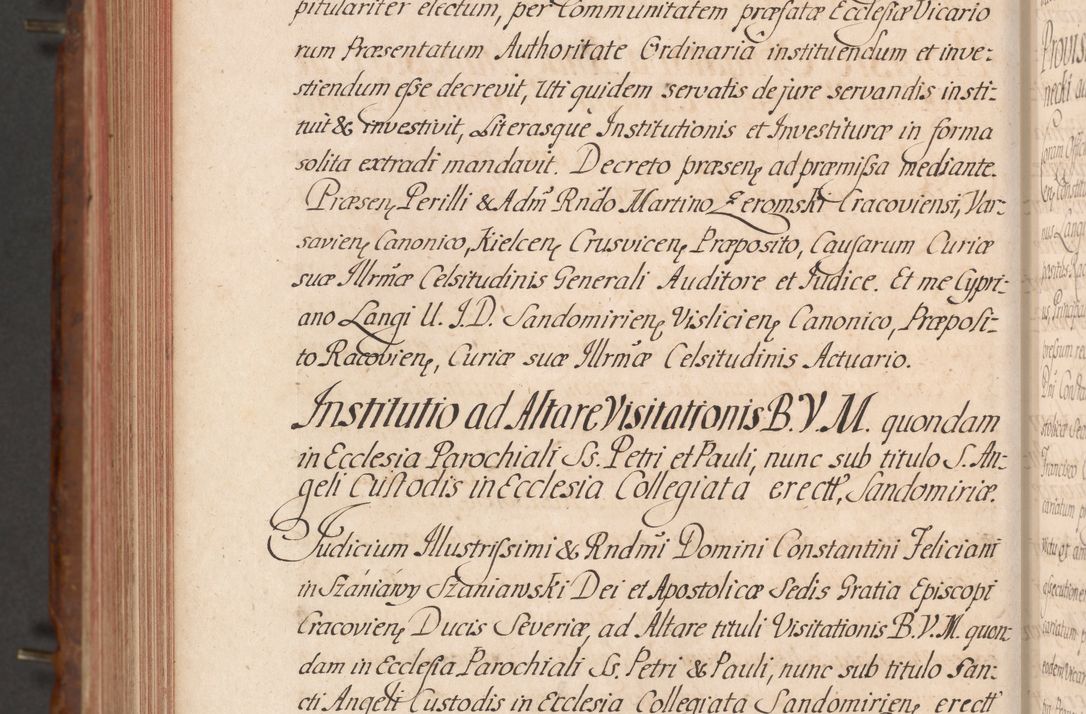 pitulariter electum, per Communitatem præfatæ Ecclesiæ Vicario
rum Præsentatum Authoritate Ordinaria instituendum et inve:
stiendum eſse decrevit, Uti quidem servatis de jure servandis insti:
tuit & investivit, Literasque Institutionis et Investituræ in forma
solita extradi mandavit. Decreto præsenę ad præmiſsa mediante.
Præsenę Perilli & Adm̃ Rñdo Martino Żeromski Cracoviensi, Var:
savienę Canonico, Kielcenę Crusvicenę Præposito, Cauſarum Curiæ
suæ Illrm̃æ Celsitudinis Generali Auditore et Judice. Et me Cypri:
ano Langi U. J. D. Sandomirienę Vislicienę Canonico, Præpoſi:
to Racovienę, Curiæ suæ Illrm̃æ Celsitudinis Actuario.
Institutio ad Altare Visitationis B. V. M. quondam
in Ecclesia Parochiali Ss. Petri et Pauli, nunc sub titulo S. An:
geli Custodis in Ecclesia Collegiata erectt, Sandomiriæ.
Judicium Illustriſsimi & Rndm̃i Domini Constantini Feliciani
in Szaniawy Szaniawski Dei et Apostolicæ Sedis Gratia Episcopi
Cracovienę Ducis Severiæ, ad Altare tituli Visitationis B. V. M. quon:
dam in Eccleſia Parochiali Ss. Petri & Pauli, nunc sub titulo San:
cti Angeli Custodis in Ecclesia Collegiata Sandomirienę erectt